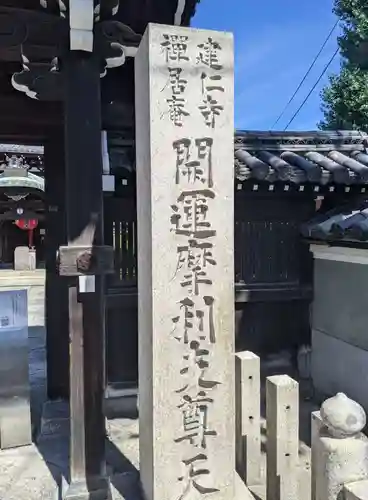 建仁寺
禪居庵
開運摩利支尊天